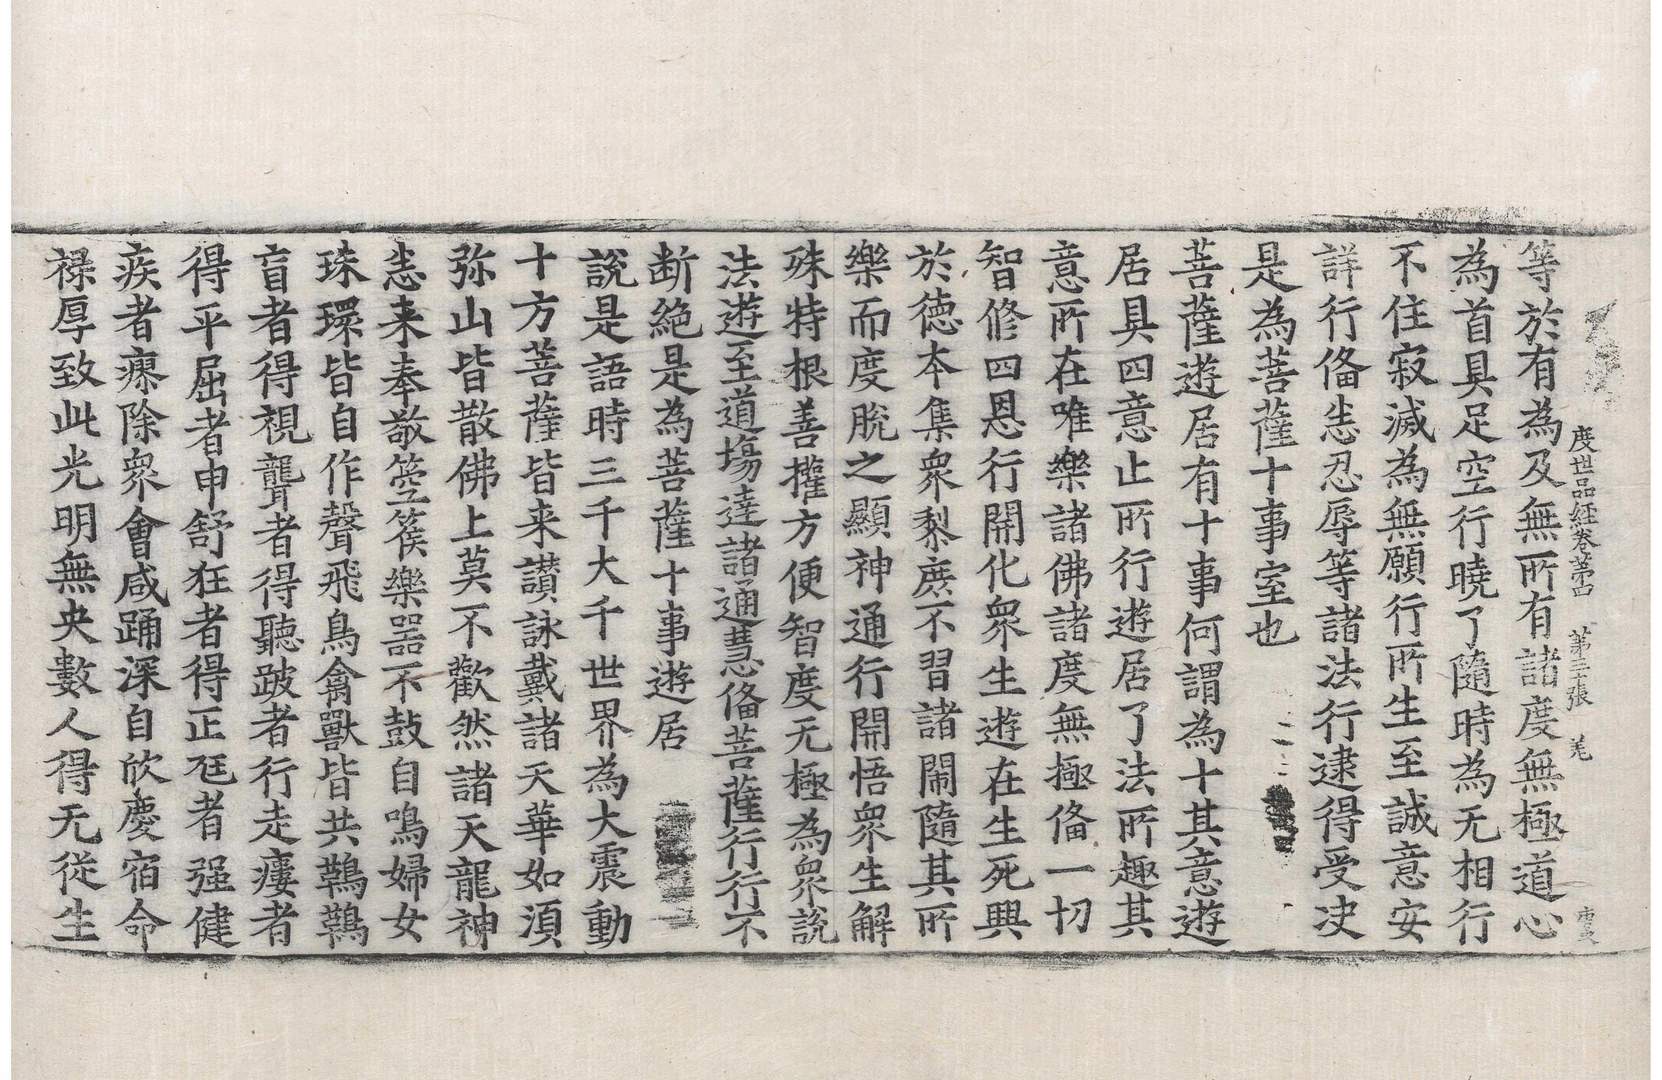 度世品經卷第四　第三十張　羌
等於有為及無所有諸度無極道心
為首具足空行曉了隨時為无相行
不住寂滅為無願行所生至誠意安
詳行俻恚忍辱等諸法行逮得受决
是為菩薩十事室也
菩薩遊居有十事何謂為十其意遊
居具四意止所行遊居了法所趣其
意所在唯樂諸佛諸度無極俻一切
智修四恩行開化衆生遊在生死興
於徳本集衆黎庶不習諸閙隨其所
樂而度脫之顯神通行開悟衆生解
殊特根善權方便智度无極為衆說
法遊至道場達諸通慧俻菩薩行行不
断絕是為菩薩十事遊居
說是語時三千大千世界為大震動
十方菩薩皆来讃詠戴諸天華如湏
弥山皆散佛上莫不歡然諸天龍神
悉来奉敬箜篌樂器不鼓自鳴婦女
珠環皆自作聲飛鳥禽獸皆共鶾鶾
盲者得視聾者得聽跛者行走瘻者
得平屈者申舒狂者得正尫者强健
疾者瘳除衆會咸踊深自欣慶宿命
禄厚致此光明無央數人得无從生